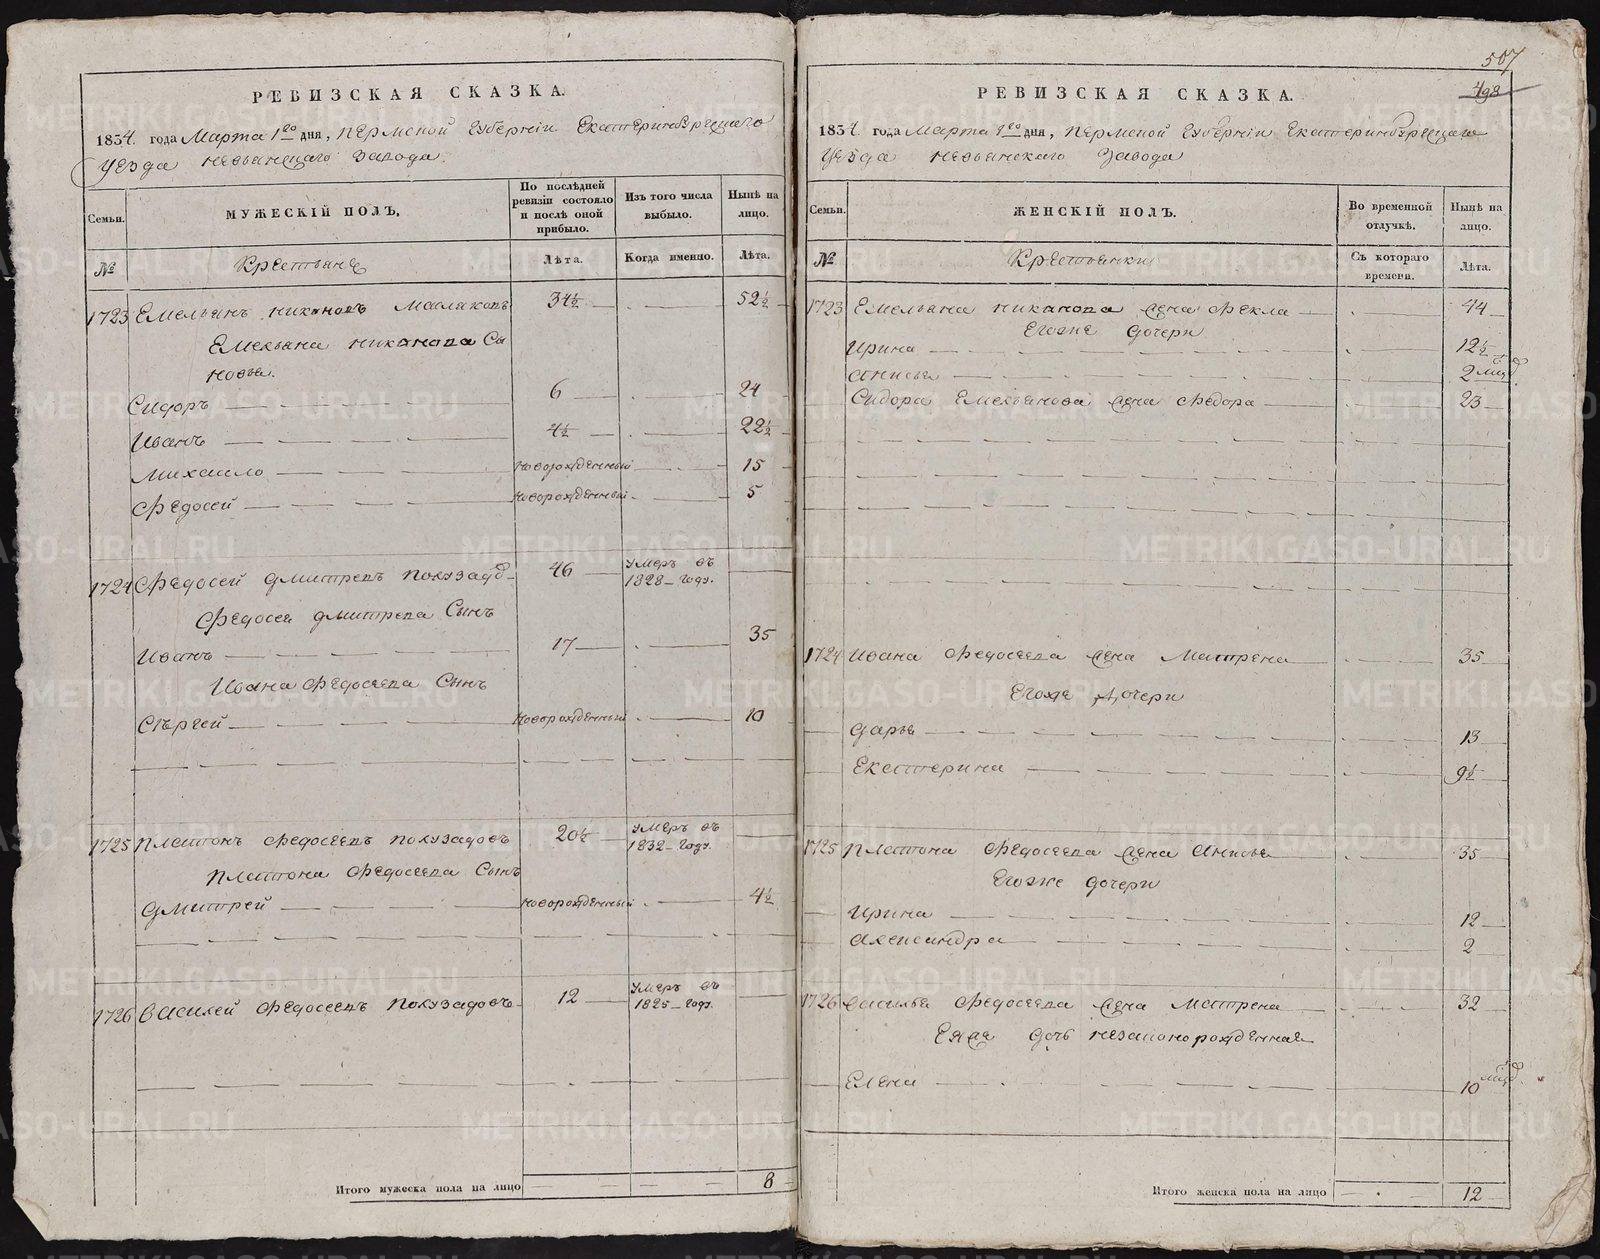 РЕВИЗСКАЯ СКАЗКА.
1834. года Марта 1го дня, Пермской Губернiи Екатеринбурскаго
Уезда Невьянскаго Завода.
Семьи.
МУЖЕСКIЙ ПОЛЪ.
По послѣдней ревизiи состояло и послѣ оной прибыло.
Изъ того числа выбыло.
Нынѣ на лицо.
№
Крестьяне
Лѣта.
Когда именно.
Лѣта.
1723 Емельянъ Никановъ Малаховъ 34½ 52½
Емельяна Никанова Сы
новья.
Сидоръ 6 24
Иванъ 4½ 22½
Михаило новорожденный 15
Федосей новорожденный 5
1724 Федосей Дмитревъ Полузадо- 46 умеръ въ 1828 году.
Федосея Дмитрева Сынъ
Иванъ 17 35
Ивана Федосеева Сынъ
Сергей новорожденный 10
1725 Платонъ Федосеевъ Полузадовъ 20½ умеръ въ 1832 году.
Платона Федосеева Сынъ
Дмитрей новорожденный 4½
1726 Василей Федосеевъ Полузадовъ 12 умеръ въ 1825 году.
Итого мужеска пола на лицо 8
507
498
РЕВИЗСКАЯ СКАЗКА.
1834. года Марта 1го дня, Пермской Губернiи Екатеринбурскаго
Уезда Невьянскаго Завода
Семьи.
ЖЕНСКIЙ ПОЛЪ.
Во временной отлучкѣ.
Нынѣ на лицо.
№
Крестьянки
Съ котораго времени.
Лѣта.
1723 Емельяна Никанова жена Фекла 44
Егоже дочери
Ирина 12½
Анисья 2
Сидора Емельянова жена Федора 23
1724 Ивана Федосеева жена Матрена 35
Егоже дочери
Дарья 13
Екатерина 9½
1725 Платона Федосеева жена Анисья 35
Егоже дочери
Ирина 12
Александра 2
1726 Василья Федосеева жена Матрена 32
Еяже дочь незаконорожденная
Елена 10
Итого женска пола на лицо 12
METRIKI.GASO-URAL.RU